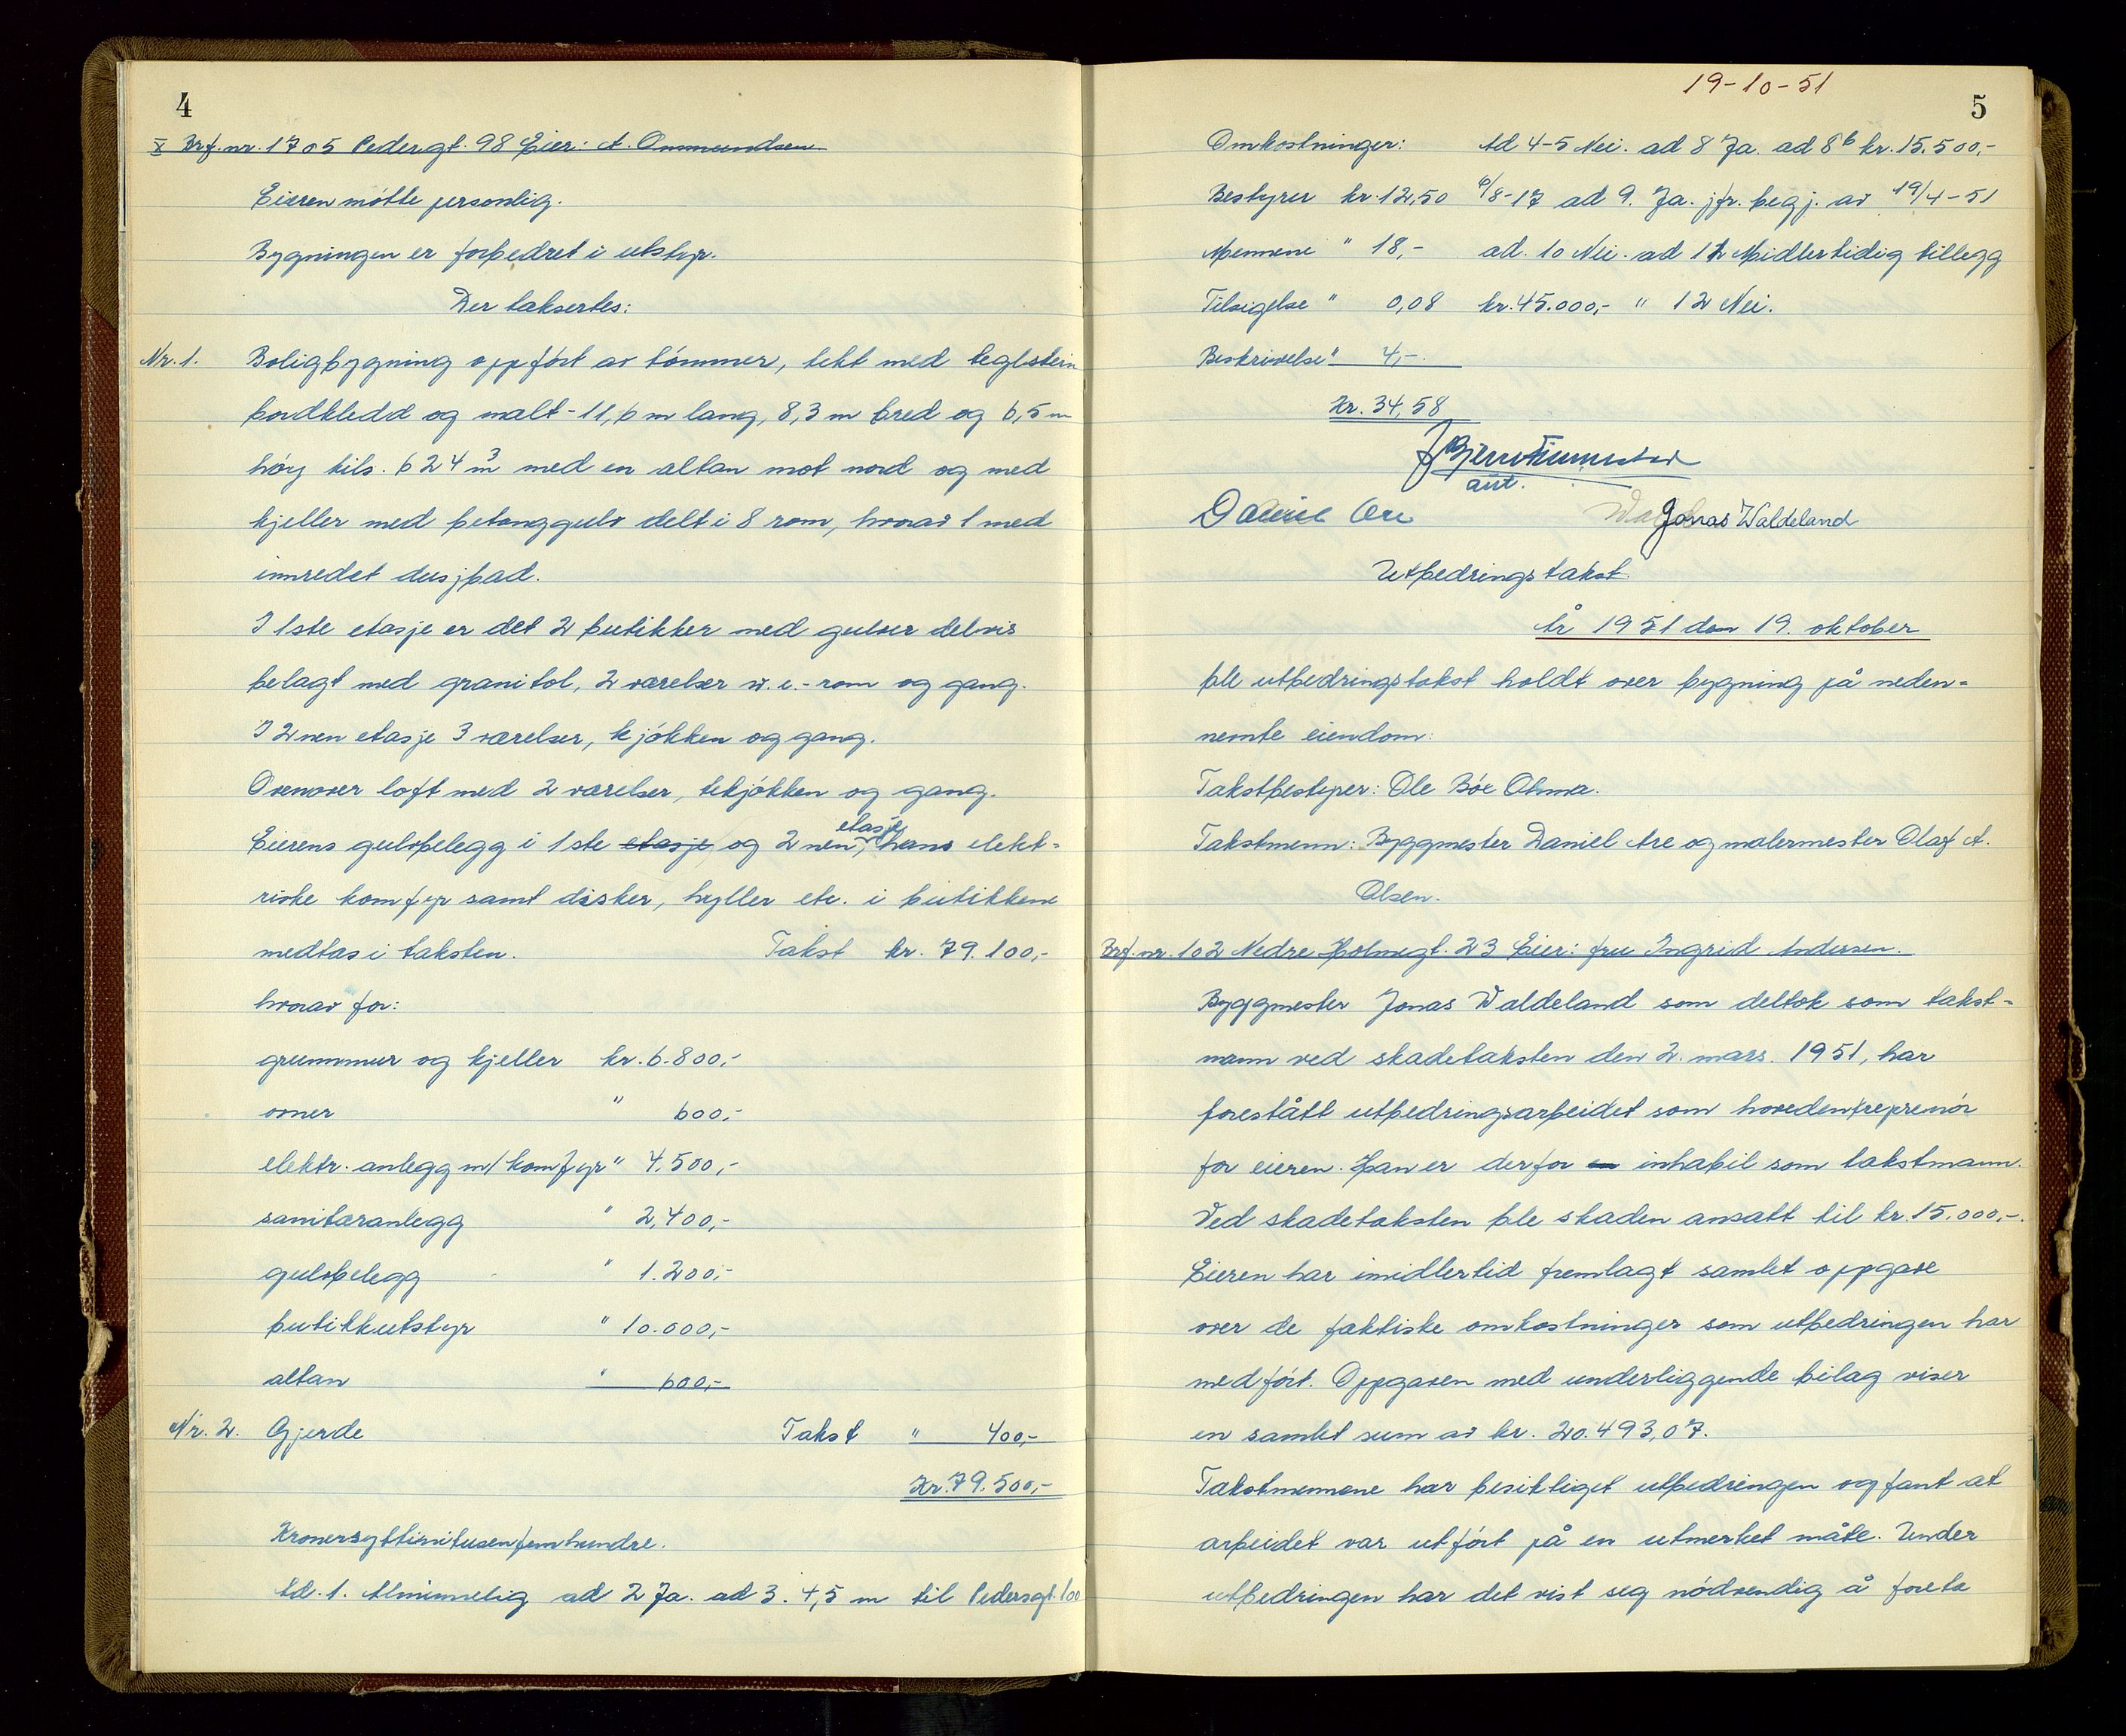 4
X Brf. nr. 1705 Pedersgt. 98 Eier: A. Ommundsen
Eieren møtte personlig.
Bygningen er forbedret i utstyr.
Der taksertes:
Nr. 1. Boligbygning oppført av tømmer, tekt med teglstein
bordkledd og malt - 11,6 m lang, 8,3 m bred og 6,5 m
høy tils. 624 m³ med en altan mot nord og med
kjeller med betonggulv delt i 8 rom, hvorav 1 med
innredet dusjbad.
I 1ste etasje er det 2 butikker med gulver delvis
belagt med granitol, 2 værelser w.c.-rom og gang.
I 2nen etasje 3 værelser, kjøkken og gang.
Ovenover loft med 2 værelser, tekjøkken og gang.
Eierens gulvbelegg i 1ste etasje og 2nen etasje, hans elekt-
riske komfyr samt disker, hyller etc. i butikkene
medtas i taksten. Takst kr. 79.100,-
hvorav for:
grunnmur og kjeller kr. 6.800,-
ovner " 600,-
elektr. anlegg m/komfyr " 4.500,-
sanitæranlegg " 2,400,-
gulvbelegg " 1.200,-
butikkutstyr " 10.000,-
altan " 600,-
Nr. 2. Gjerde Takst " 400,-
Kr. 79.500,-
Kronersyttinitusenfemhundre.
Ad. 1. Alminnelig ad 2 Ja. ad 3. 4,5 m til Pedersgt. 100
19-10-51
5
Omkostninger: Ad 4-5 Nei. ad 8 Ja. ad 8b kr. 15.500,-
Bestyrer kr. 12,50 6/8-17 ad 9. Ja. jfr. begj. av 19/4-51
Mennene " 18,- ad. 10 Nei. ad 11 Midlertidig tillegg
Tilsigelse " 0,08 kr. 45.000,- " 12 Nei.
Beskrivelse " 4,-
Kr. 34,58
ass.
Daniel Are Jonas Waldeland
Utbedringstakst.
År 1951 den 19. oktober
ble utbedringstakst holdt over bygning på neden-
nemte eiendom:
Takstbestyrer: Ole Bøe Ohma.
Takstmenn: Byggmester Daniel Are og malermester Olaf A.
Olsen.
Brf. nr. 102 Nedre Holmegt. 23 Eier: fru Ingrid Andersen.
Byggmester Jonas Waldeland som deltok som takst-
mann ved skadetaksten den 2. mars. 1951, har
forestått utbedringsarbeidet som hovedentreprenør
for eieren. Han er derfor en inhabil som takstmann.
Ved skadetaksten ble skaden ansatt til kr. 15.000,-.
Eieren har imidlertid fremlagt samlet oppgave
over de faktiske omkostninger som utbedringen har
medført. Oppgaven med underliggende bilag viser
en samlet sum av kr. 20.493,07.
Takstmennene har besiktiget utbedringen og fant at
arbeidet var utført på en utmerket måte. Under
utbedringen har det vist seg nødvendig å foreta